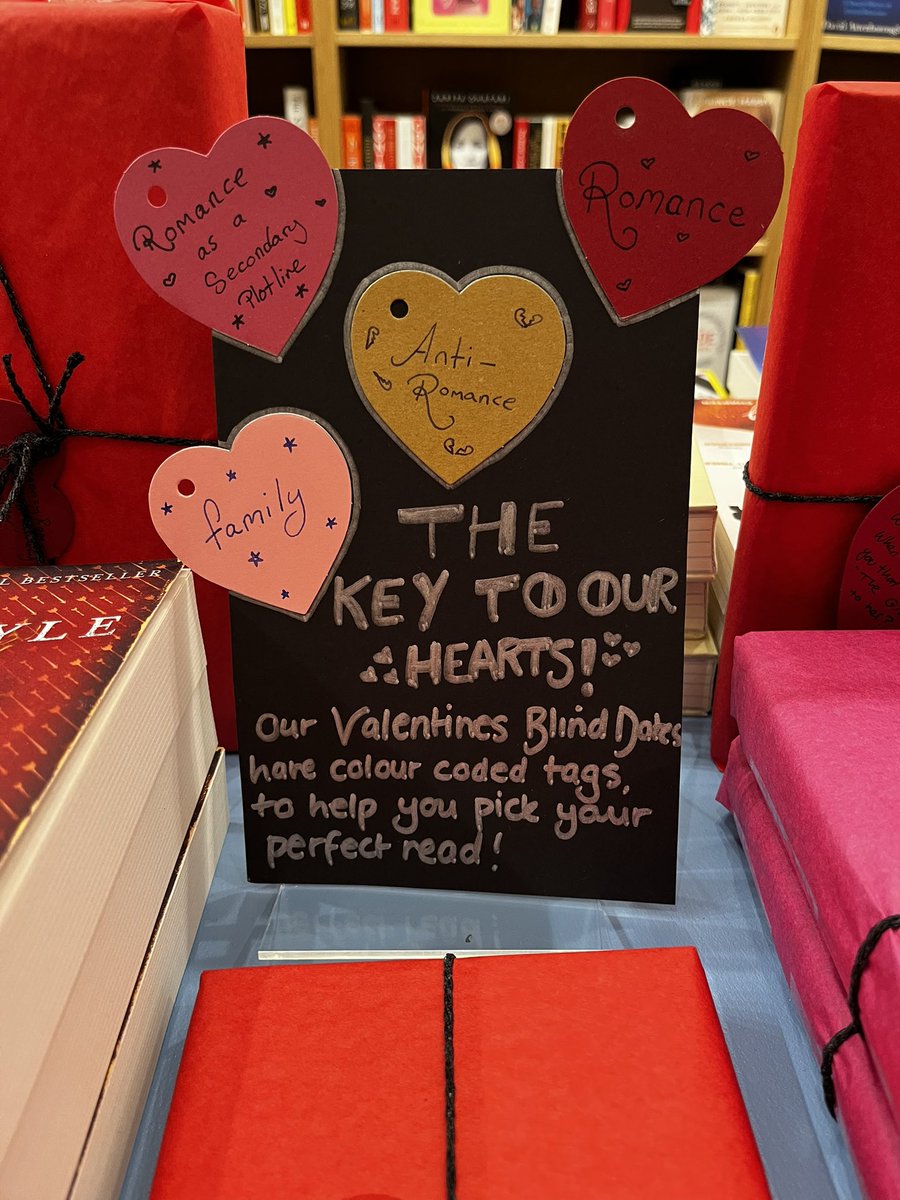 Romance
as a
Secondary
Plotline
Romance
Anti-
Romance
family
THE
KEY TO OUR
HEARTS!
Our Valentines Blind Dates
have colour coded tags,
to help you pick your
perfect read!
L BESTSELLER
YLE